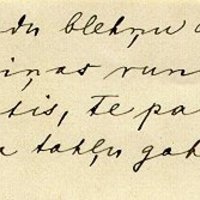 du blehņu
iņas run
tis, te pa
a tahļu gah